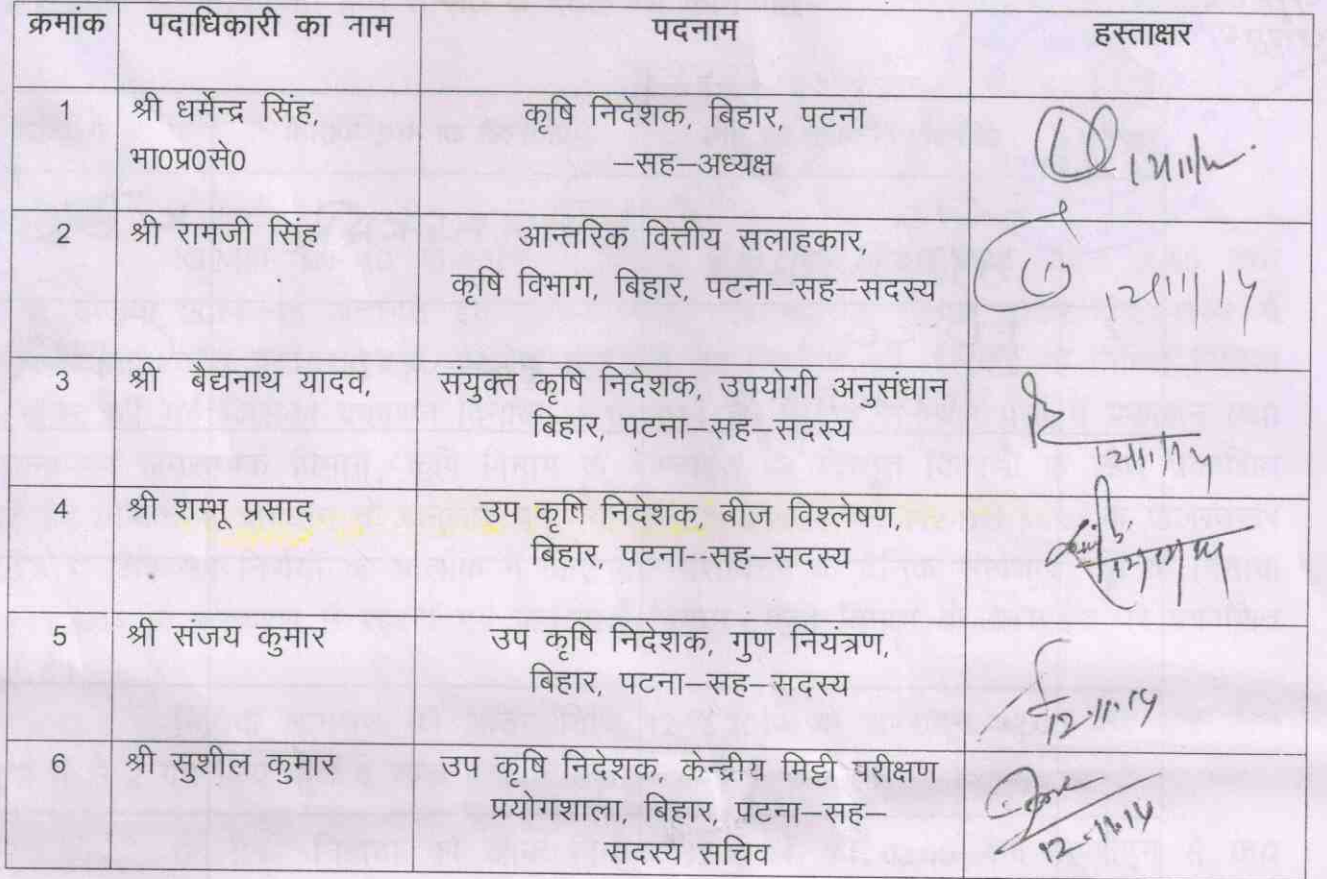 क्रमांक पदाधिकारी का नाम पदनाम हस्ताक्षर
1 श्री धर्मेन्द्र सिंह, कृषि निदेशक, बिहार, पटना
भा0प्र0से0 –सह–अध्यक्ष
2 श्री रामजी सिंह आन्तरिक वित्तीय सलाहकार,
कृषि विभाग, बिहार, पटना–सह–सदस्य
3 श्री बैद्यनाथ यादव, संयुक्त कृषि निदेशक, उपयोगी अनुसंधान
बिहार, पटना–सह–सदस्य
12/11/14
4 श्री शम्भू प्रसाद उप कृषि निदेशक, बीज विश्लेषण,
बिहार, पटना–सह–सदस्य
5 श्री संजय कुमार उप कृषि निदेशक, गुण नियंत्रण,
बिहार, पटना–सह–सदस्य
12.11.14
6 श्री सुशील कुमार उप कृषि निदेशक, केन्द्रीय मिट्टी परीक्षण
प्रयोगशाला, बिहार, पटना–सह–
सदस्य सचिव
12.11.14